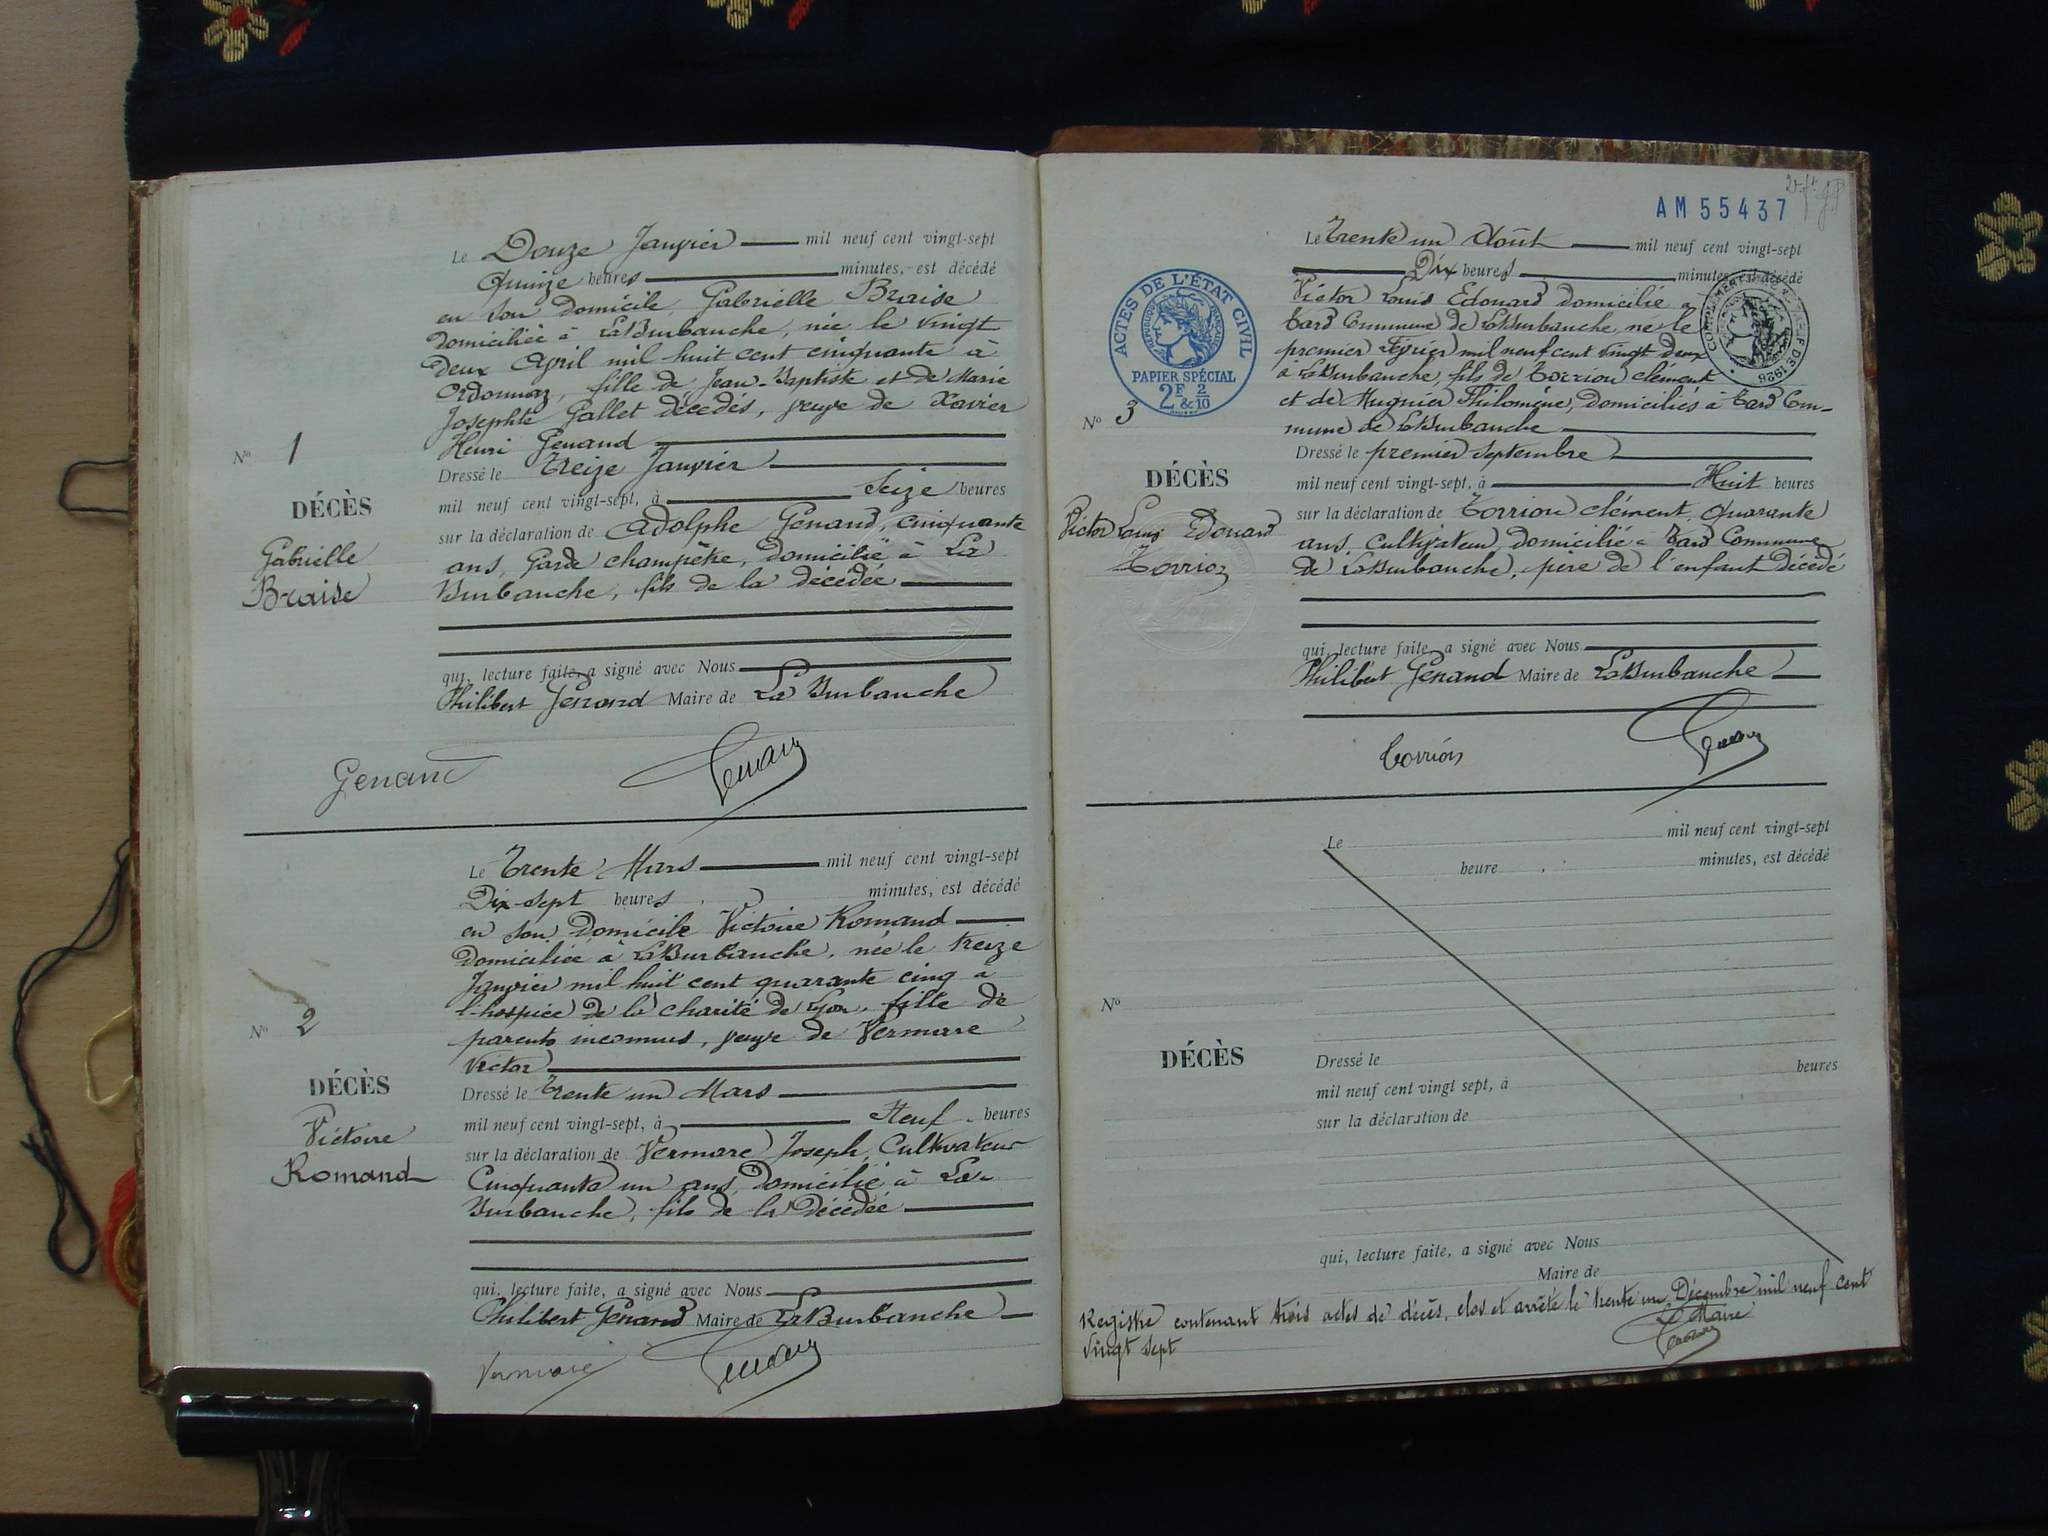 Le Douze Janvier mil neuf cent vingt-sept
Quinze heures minutes, est décédé
en son domicile, Gabrielle Braise
domiciliée à La Burbanche, née le vingt
deux Avril mil huit cent cinquante à
Ordonnaz, fille de Jean-Baptiste et de Marie
Josephte Gallet décédés, veuve de Xavier
Henri Genand
Nº 1
Dressé le Treize Janvier
mil neuf cent vingt-sept, à Seize heures
DÉCÈS
sur la déclaration de Adolphe Genand, cinquante
Gabrielle
ans, Garde champêtre, domicilié à La
Braise
Burbanche, fils de la décédée
qui, lecture faite, a signé avec Nous
Philibert Genand Maire de La Burbanche
Genand
Genand
Le Trente Mars mil neuf cent vingt-sept
Dix-sept heures minutes, est décédé
en son domicile Victoire Romand
domiciliée à La Burbanche, née le treize
Janvier mil huit cent quarante cinq à
l'hospice de la charité de Lyon, fille de
Nº 2
parents inconnus, veuve de Vermare
Victor
DÉCÈS
Dressé le Trente un Mars
mil neuf cent vingt-sept, à Neuf heures
Victoire
sur la déclaration de Vermare Joseph, Cultivateur
Romand
Cinquante un ans, domicilié à La
Burbanche, fils de la Décédée
qui, lecture faite, a signé avec Nous
Philibert Genand Maire de La Burbanche
Vermare
Genand
AM 55437
Le Trente un Août mil neuf cent vingt-sept
Dix heures minutes, est décédé
Victor Louis Edouard domicilié à
Tard Commune de La Burbanche, né le
premier Février mil neuf cent vingt deux
à La Burbanche, fils de Torrion Clément
et de Mugnier Philomène, domiciliés à Tard Com-
mune de La Burbanche
ACTES DE L'ÉTAT CIVIL
RÉPUBLIQUE FRANÇAISE
PAPIER SPÉCIAL
2F & 2/10
Nº 3
Dressé le premier Septembre
DÉCÈS
mil neuf cent vingt-sept, à Huit heures
sur la déclaration de Torrion Clément, Quarante
Victor Louis Edouard
ans, Cultivateur, domicilié à Tard Commune
Torrion
de La Burbanche, père de l'enfant décédé
qui, lecture faite, a signé avec Nous
Philibert Genand Maire de La Burbanche
Torrion
Genand
Le mil neuf cent vingt-sept
heure minutes, est décédé
Nº
DÉCÈS
Dressé le
mil neuf cent vingt sept, à heures
sur la déclaration de
qui, lecture faite, a signé avec Nous
Maire de
Registre contenant trois actes de décès, clos et arrêté le trente un Décembre mil neuf cent
vingt sept
Le Maire
Genand